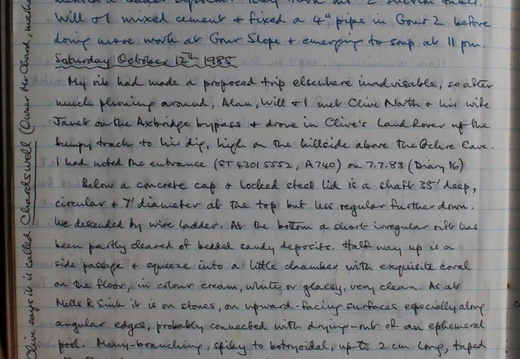 Will + I mixed cement + fixed a 4" pipe in Gour 2 before
doing more work at Gour Slope + emerging to soup at 11 pm.
Saturday October 12th 1985
My rib had made a proposed trip elsewhere inadvisable, so after
much phoning around, Alan, Will + I met Clive North + his wife
Janet on the Axbridge bypass + drove in Clive's Land Rover up the
bumpy track to his dig, high on the hillside above the Ochre Cave.
I had noted the entrance (ST 4301 5552, A740) on 7.7.83 (Diary 16)
Below a concrete cap + locked steel lid is a shaft 35' deep,
circular + 7' diameter at the top but less regular further down.
We descended by wire ladder. At the bottom a short irregular rift has
been partly cleared of bedded sandy deposits. Half way up is a
side passage + squeeze into a little chamber with exquisite coral
on the floor, in colour cream, white or glassy, very clean. As at
Mells R Sink it is on stones, on upward-facing surfaces, especially along
angular edges, probably connected with drying-out of an ephemeral
pool. Many-branching, spiky to botryoidal, up to 2 cm long, taped
Clive says it is called Chardswell (Owner Mr Chard,